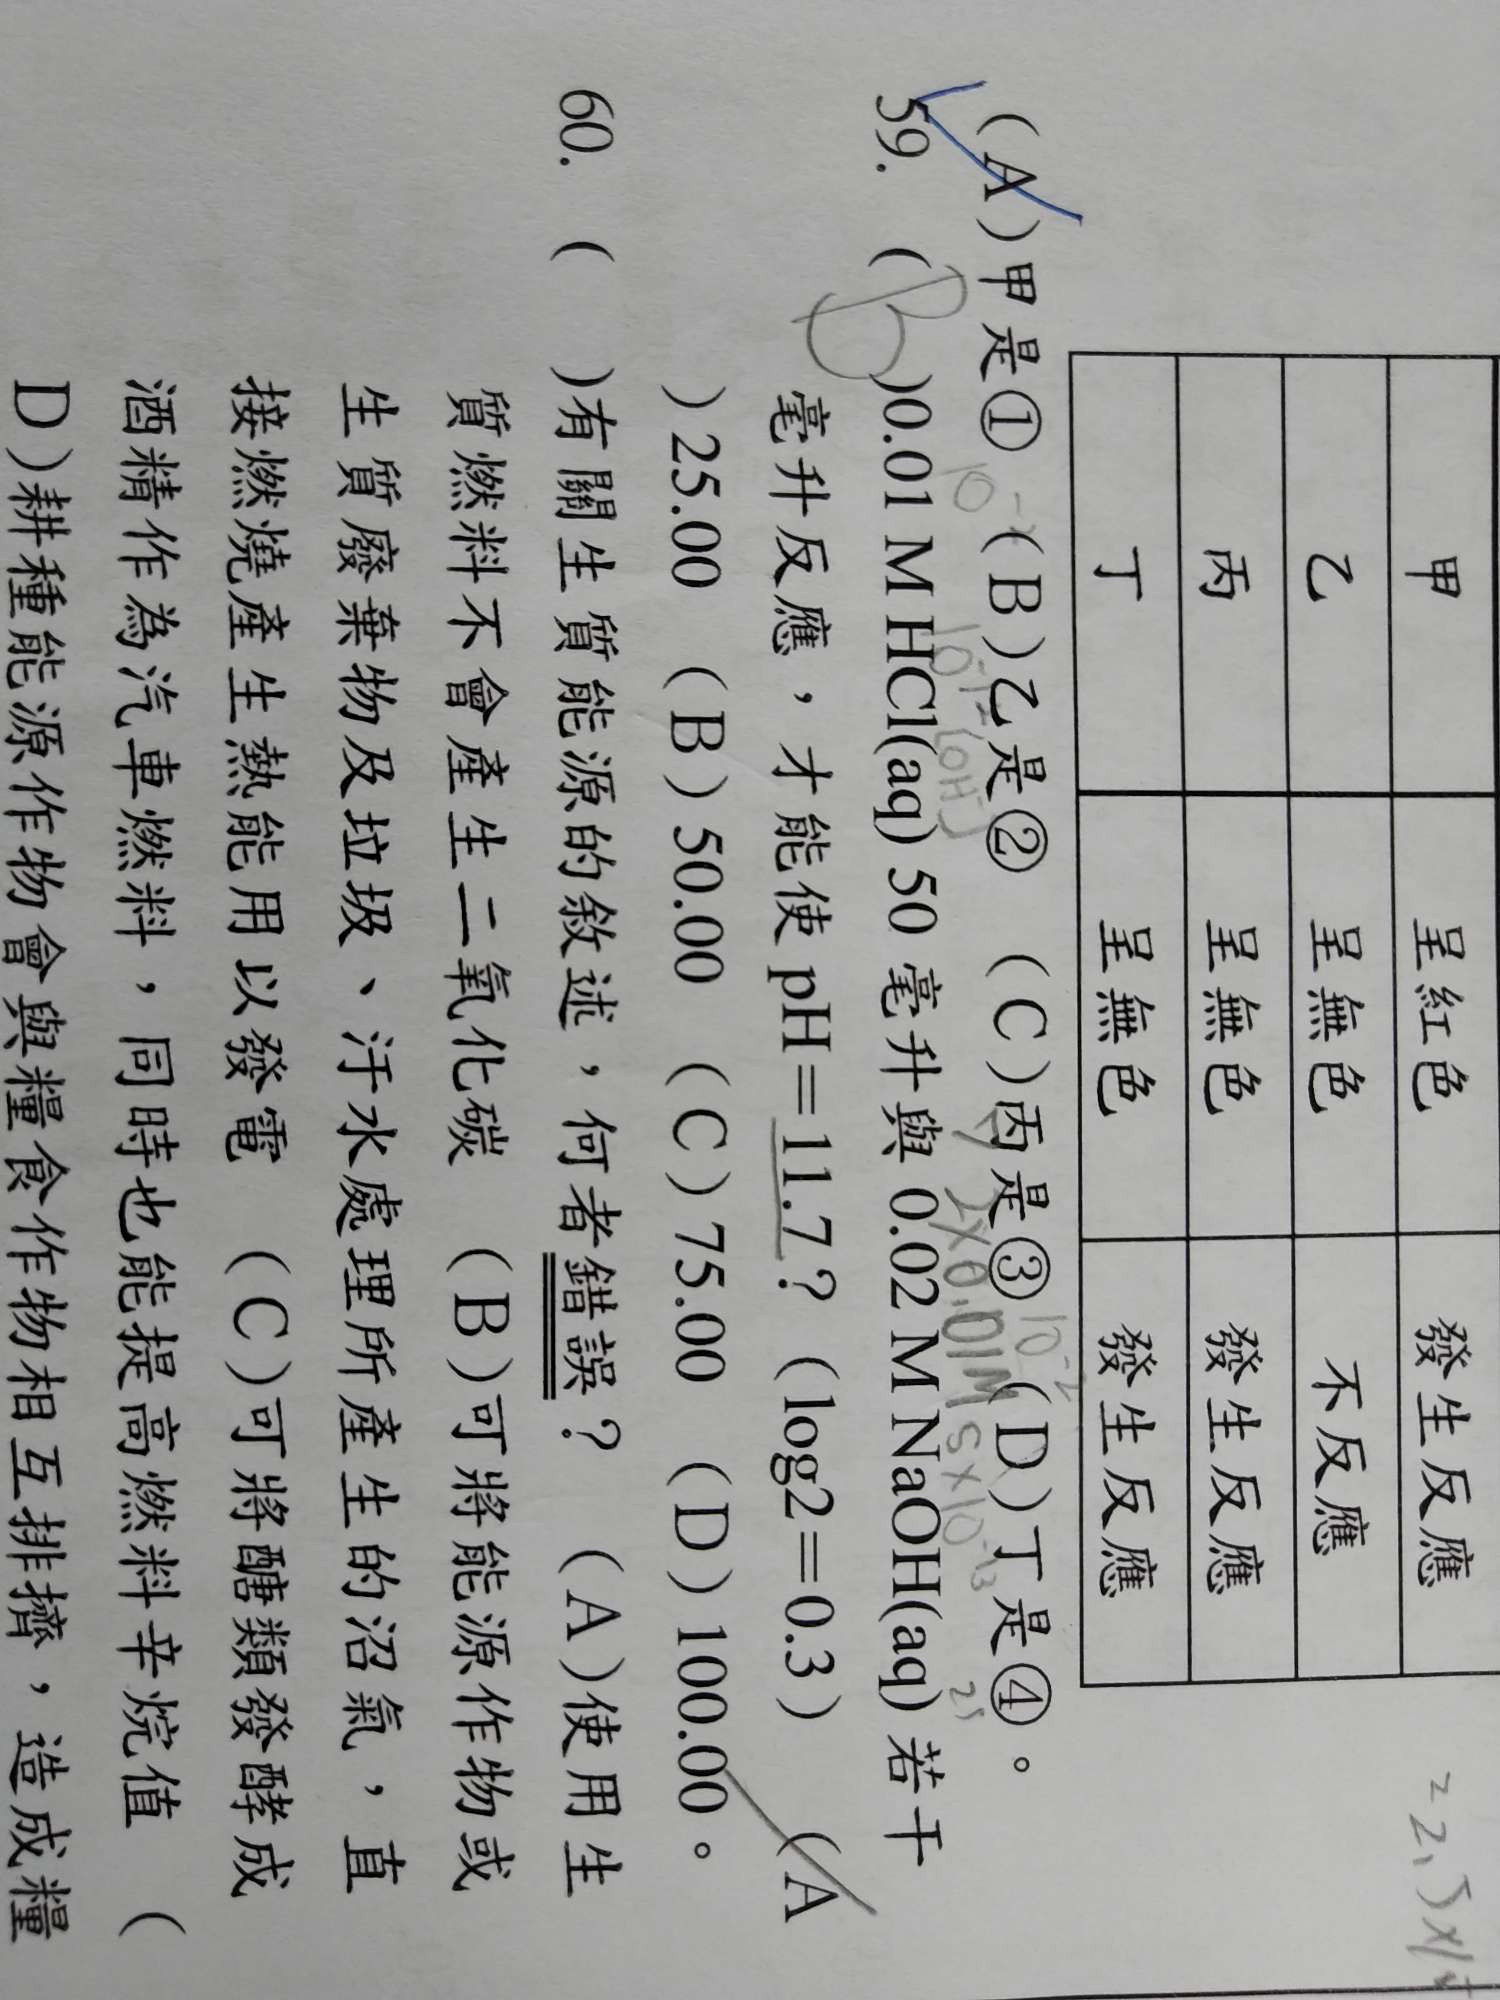 甲 呈紅色 發生反應
乙 呈無色 不反應
丙 呈無色 發生反應
丁 呈無色 發生反應
(A)甲是① (B)乙是② (C)丙是③ (D)丁是④。
59. (B)0.01 M HCl(aq) 50 毫升與 0.02 M NaOH(aq) 若干
毫升反應，才能使 pH＝11.7？（log2＝0.3） (A
) 25.00 (B) 50.00 (C) 75.00 (D) 100.00。
60. ( )有關生質能源的敘述，何者錯誤？ (A)使用生
質燃料不會產生二氧化碳 (B)可將能源作物或
生質廢棄物及垃圾、汙水處理所產生的沼氣，直
接燃燒產生熱能用以發電 (C)可將醣類發酵成
酒精作為汽車燃料，同時也能提高燃料辛烷值 (
D)耕種能源作物會與糧食作物相互排擠，造成糧